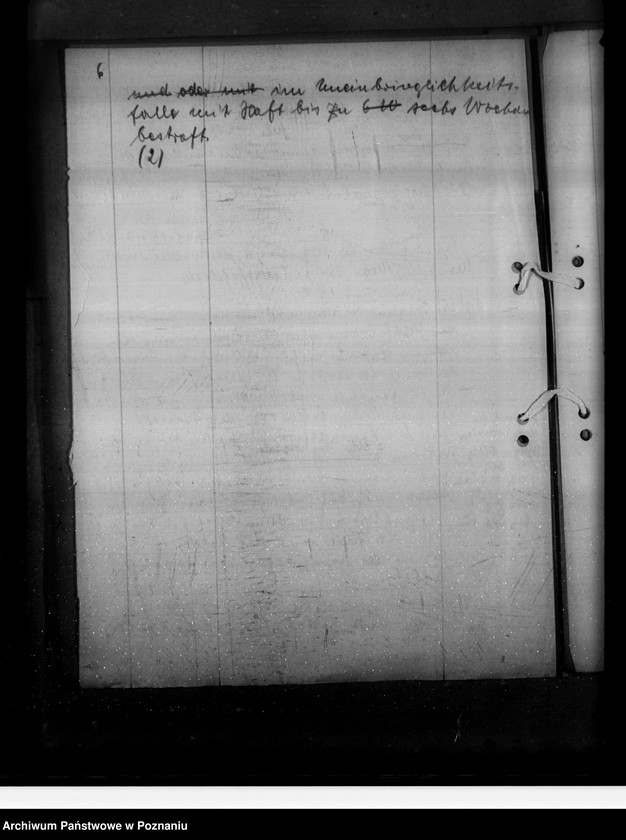 6
und oder mit im Uneinbringlichkeits-
falle mit Haft bis zu 6 W sechs Wochen
bestraft.
(2)
Archiwum Państwowe w Poznaniu